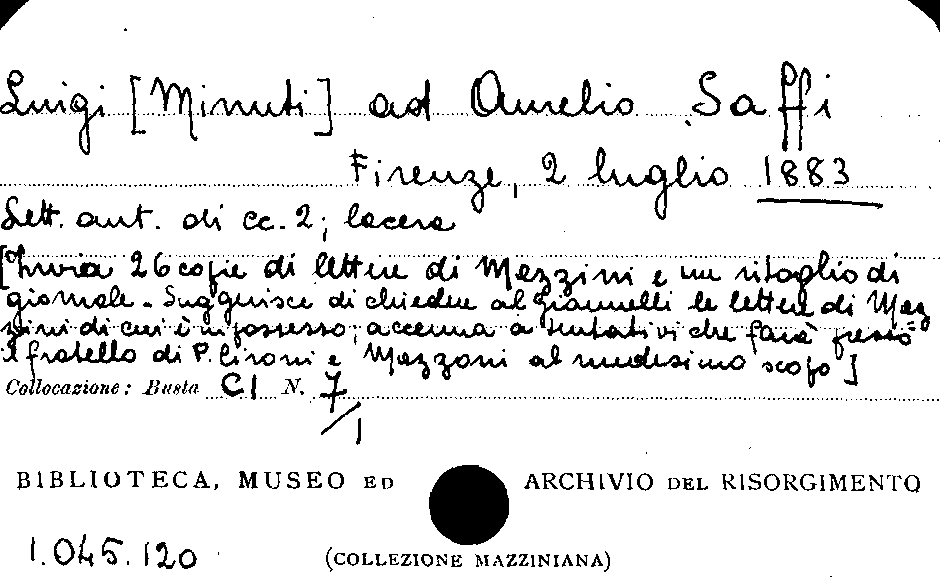 Luigi [Minuti] ad Aurelio Saffi
Firenze, 2 luglio 1883
Lett. aut. di cc. 2; lacera
[Invia 26 copie di lettere di Mazzini e un ritaglio di
giornale - Suggerisce di chiedere al Giannelli le lettere di Maz
zini di cui è in possesso; accenna a tentativi che farà presso
il fratello di P. Cironi e Mazzoni al medesimo scopo]
Collocazione: Busta CI N. 7/1
BIBLIOTECA, MUSEO ED ARCHIVIO DEL RISORGIMENTO
1.045.120 (COLLEZIONE MAZZINIANA)